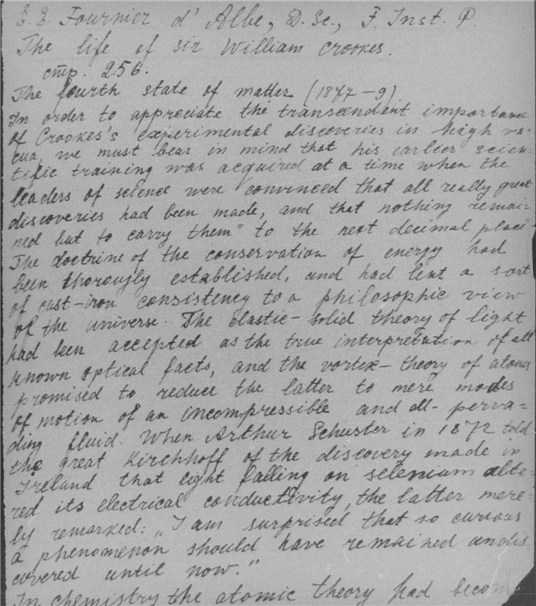 E. E. Fournier d'Albe, D. Sc., F. Inst. P.
The life of sir William Crookes.
стр. 256.
The fourth state of matter (1877-9)
In order to appreciate the transcendent importance
of Crookes's experimental discoveries in high va-
cua, we must bear in mind that his earlier scien-
tific training was acquired at a time when the
leaders of science were convinced that all really great
discoveries had been made, and that nothing remai-
ned but to carry them" to the next decimal place
The doctrine of the conservation of energy had
been thorougly established, and had lent a sort
of cast-iron consistency to a philosophic view
of the universe. The elastic-solid theory of light
had been accepted as the true interpretation of all
known optical facts, and the vortex-theory of atoms
promised to reduce the latter to mere modes
of motion of an incompressible and all-perva-
ding fluid. When Arthur Schuster in 1872 told
the great Kirchhoff of the discovery made in
Ireland that light falling on selenium alte-
red its electrical conductivity, the latter mere-
ly remarked: „I am surprised that so curious
a phenomenon should have remained undis
covered until now."
In chemistry the atomic theory had become